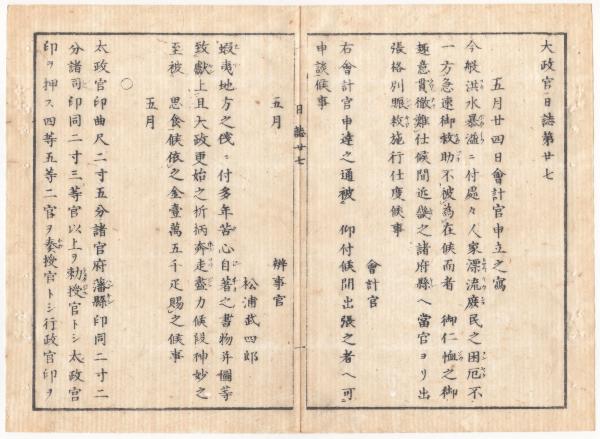 太政官日誌第廿七
五月廿四日會計官申立之寫
今般洪水暴溢ニ付處々人家漂流庶民之困厄不
一方急速御救助不被爲在候而者　御仁恤之御
趣意貫徹難仕候間近畿之諸府縣ヘ當官ヨリ出
張格別賑救施行仕度候事
會計官
右會計官申達之通被　仰付候間出張之者ヘ可
申談候事
五月
辨事官
日誌廿七
松浦武四郎
蝦夷地方之儀ニ付多年苦心自著之書物幷圖等
致獻上且大政更始之折柄奔走盡力候段神妙之
至被　思食候依之金壹萬五千疋賜之候事
五月
〇
太政官印曲尺二寸五分諸官府藩縣印同二寸二
分諸司印同二寸三等官以上ヲ勅授官トシ太政官
印ヲ押ス四等五等二官ヲ奏授官トシ行政官印ヲ